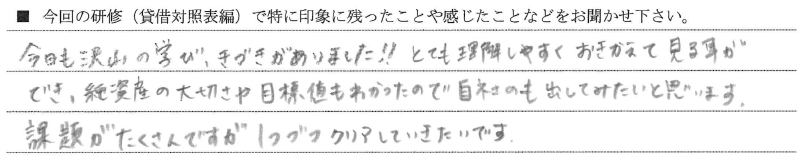 ■ 今回の研修（貸借対照表編）で特に印象に残ったことや感じたことなどをお聞かせ下さい。
今日も沢山の学び、きづきがありました!! とても理解しやすく おきかえて 見る事が
でき、純資産の大切さや 目標値もわかったので 自社のも出してみたいと思います。
課題がたくさんですが 1つづつ クリアしていきたいです。